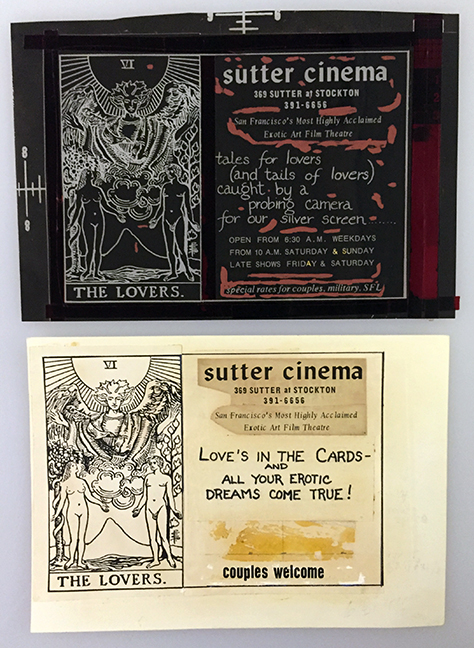 VI
THE LOVERS.
sutter cinema
369 SUTTER at STOCKTON
391-6656
San Francisco's Most Highly Acclaimed
Exotic Art Film Theatre
tales for lovers
(and tails of lovers)
caught by a
probing camera
for our silver screen.......
OPEN FROM 6:30 A.M. WEEKDAYS
FROM 10 A.M. SATURDAY & SUNDAY
LATE SHOWS FRIDAY & SATURDAY
special rates for couples, military, SFL
8
8
VI
THE LOVERS.
sutter cinema
369 SUTTER at STOCKTON
391-6656
San Francisco's Most Highly Acclaimed
Exotic Art Film Theatre
LOVE'S IN THE CARDS-
AND
ALL YOUR EROTIC
DREAMS COME TRUE!
couples welcome